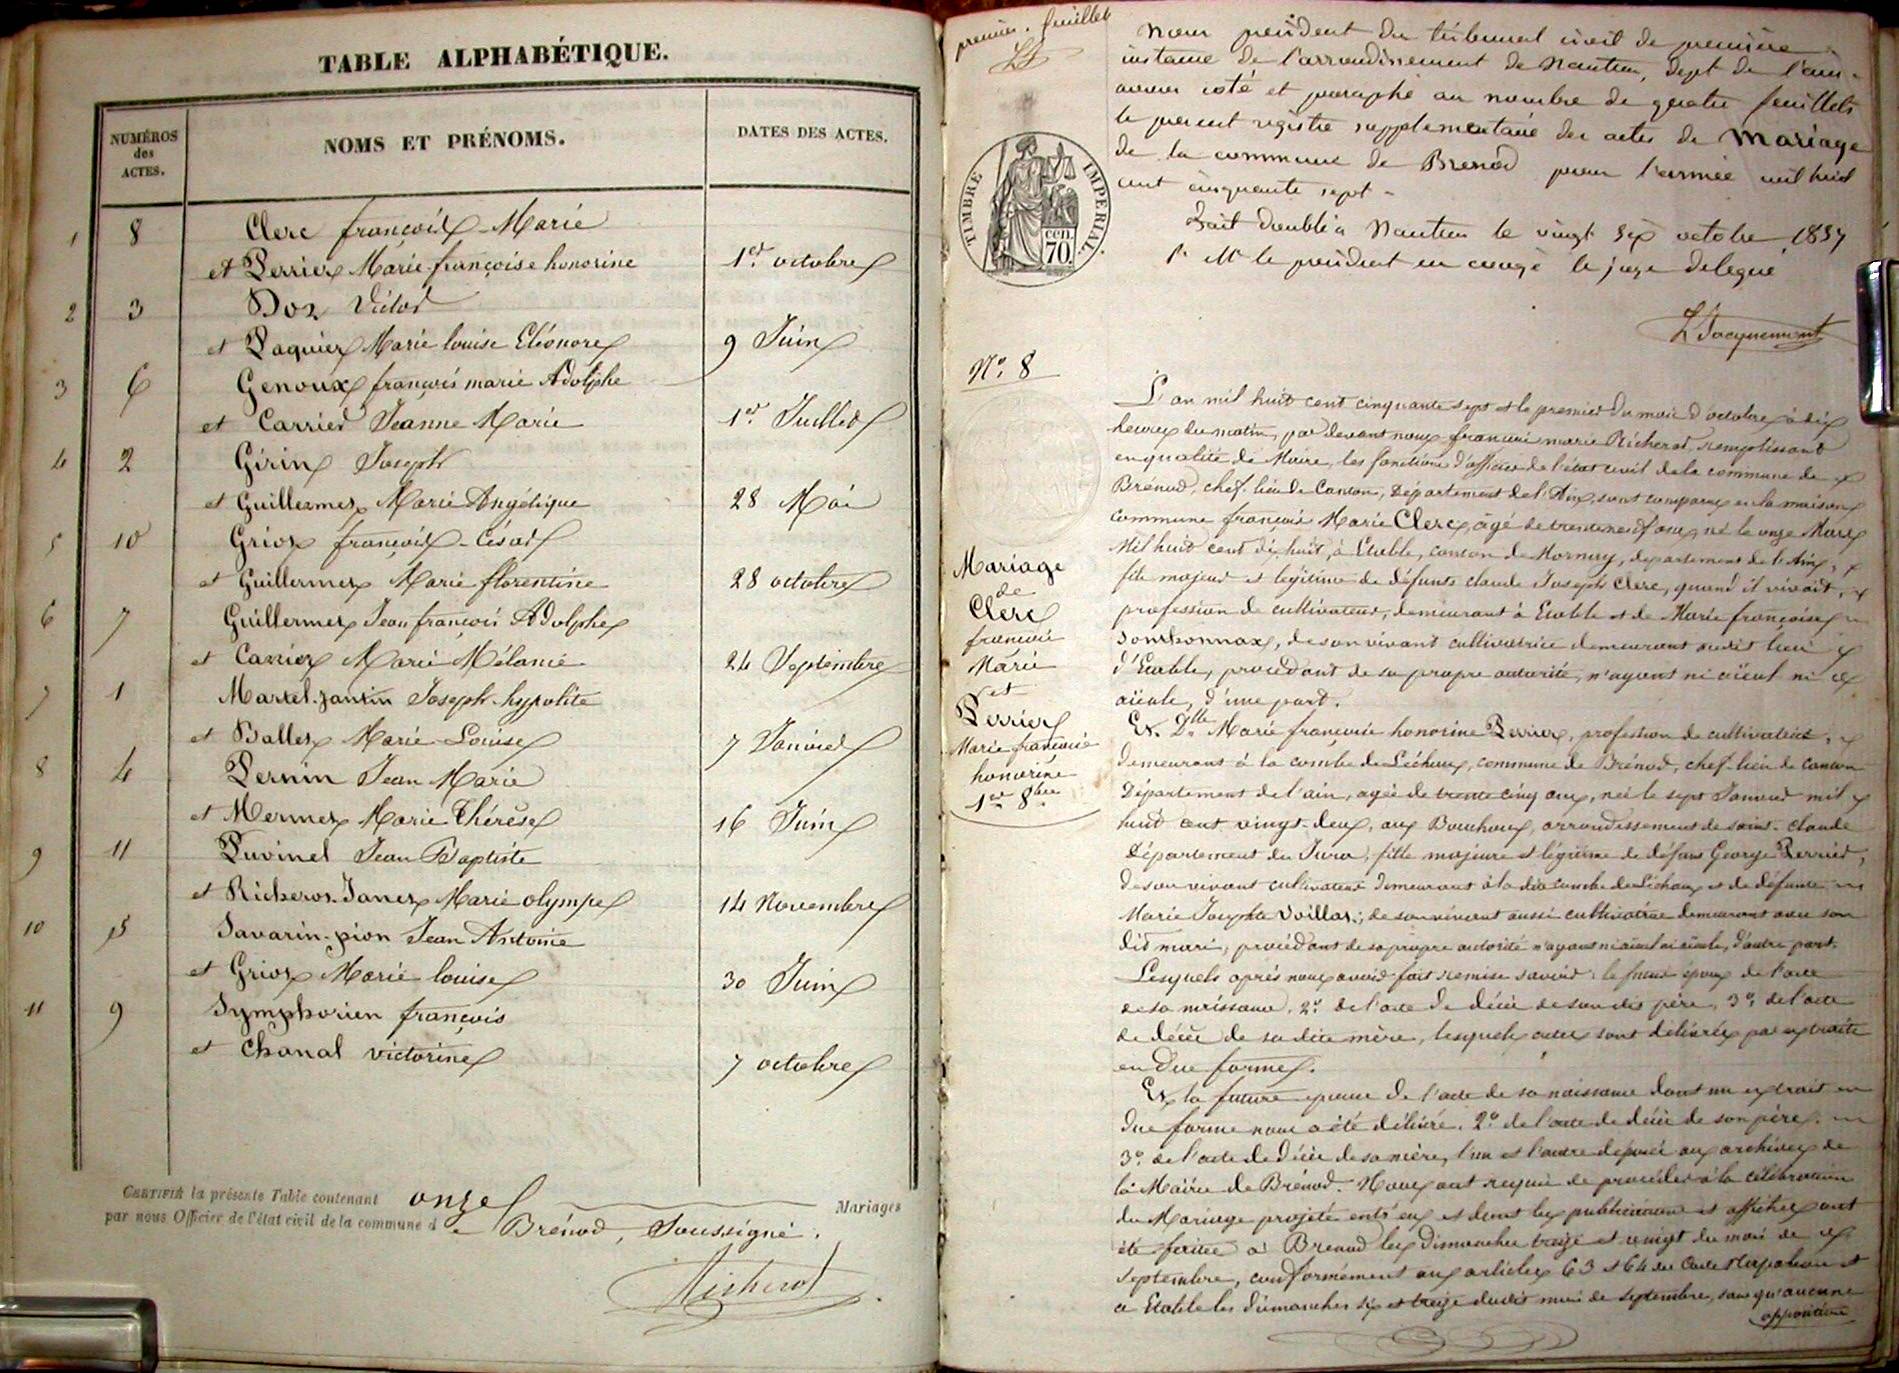 TABLE ALPHABÉTIQUE.
NUMÉROS des ACTES.
NOMS ET PRÉNOMS.
DATES DES ACTES.
1 8 Clerc françois-Marie
et Perrier Marie françoise honorine 1er octobre
2 3 Doz Victor
et Paquier Marie louise Eléonore 9 Juin
3 6 Genoux françois marie Adolphe
et Carrier Jeanne Marie 1er Juillet
4 2 Girin Joseph
et Guillermet Marie Angélique 28 Mai
5 10 Griot françois-César
et Guillermet Marie florentine 28 octobre
6 7 Guillermet Jean françois Adolphe
et Carrier Marie Mélanie 24 Septembre
7 1 Martel-jantin Joseph-hypolite
et Ballet Marie-Louise 7 Janvier
8 4 Pernin Jean Marie
et Mermet Marie Thérèse 16 Juin
9 11 Puvinel Jean Baptiste
et Richerot-Janet Marie olympe 14 Novembre
10 5 Savarin-pion Jean Antoine
et Griot Marie louise 30 Juin
11 9 Symphorien françois
et Chanal victorine 7 octobre
CERTIFIÉ la présente Table contenant onze Mariages
par nous Officier de l'état civil de la commune de Brénod, Soussigné.
Richerot
premier feuillet
Nous président du tribunal civil de première
instance de l'arrondissement de Nantua, dept de l'ain
avons coté et paraphé au nombre de quatre feuillets
le present registre supplementaire des actes de Mariage
de la commune de Brenod pour l'année mil huit
cent cinquante sept -
fait double à Nantua le vingt six octobre 1857
Pr Mr le président en congé le juge délégué
L Jacquemont
TIMBRE IMPÉRIAL.
cen. 70.
No. 8
Mariage
de
Clerc
françois
Marie
et
Perrier
Marie françoise
honorine
1er 8bre
L'an mil huit cent cinquante sept et le premier du mois d'octobre à dix
heures du matin, par devant nous françois marie Richerot, remplissant
en qualité de Maire, les fonctions d'officier de l'état civil de la commune de
Brénod, chef-lieu de Canton, Département de l'Ain, sont comparus en la maison
commune françois Marie Clerc, âgé de trente neuf ans, né le onze Mars
Mil huit cent dix huit, à Etable, canton de Mornay, departement de l'Ain,
fils majeur et légitime de défunts claude Joseph Clerc, quand il vivait,
profession de cultivateur, demeurant à Etable et de Marie françoise
Sonthonnax, de son vivant cultivatrice demeurant audit lieu
d'Etable, procédant de sa propre autorité, n'ayant ni aïeul ni
aïeule, d'une part.
Et Dlle Marie françoise honorine Perrier, profession de cultivatrice,
demeurant à la combe de Léchaux, commune de Brénod, chef-lieu de canton
Département de l'ain, agée de trente cinq ans, née le sept Janvier mil
huit cent vingt-deux, aux Bouchoux, arrondissement de saint-claude
Département du Jura, fille majeure et légitime de défunt George Perrier,
de son vivant cultivateur demeurant à la dite combe de Léchaux et de défunte
Marie Josephte Voillat, de son vivant aussi cultivatrice demeurant avec son
dit mari, procédant de sa propre autorité n'ayant ni aïeul ni aïeule, d'autre part.
Lesquels après nous avoir fait remise savoir: le futur époux de l'acte
de sa naissance, 2o de l'acte de décès de son dit père, 3o de l'acte
de décès de sa dite mère, lesquels actes sont délivrés par extraits
en due forme.
Et la future épouse de l'acte de sa naissance dont un extrait en
due forme nous a été délivré, 2o de l'acte de décès de son père,
3o de l'acte de décès de sa mère, l'un et l'autre déposé aux archives de
la Mairie de Brénod. Nous ont requis de procéder à la célébration
du Mariage projeté entr'eux et dont les publications et affiches ont
été faites à Brenod les Dimanches treize et vingt du mois de
septembre, conformément aux articles 63 et 64 du Code Napoléon et
à Etable les dimanches six et treize dudit mois de septembre, sans qu'aucune
opposition